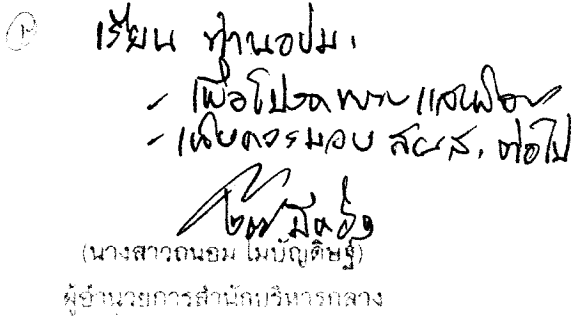 เรียน ท่านอปม.
- เพื่อโปรดทราบ และพิจารณา
- เห็นควรมอบ สผส. ต่อไป
(นางสาวถนอม ไมบัญดิษฐ์)
ผู้อำนวยการสำนักบริหารกลาง